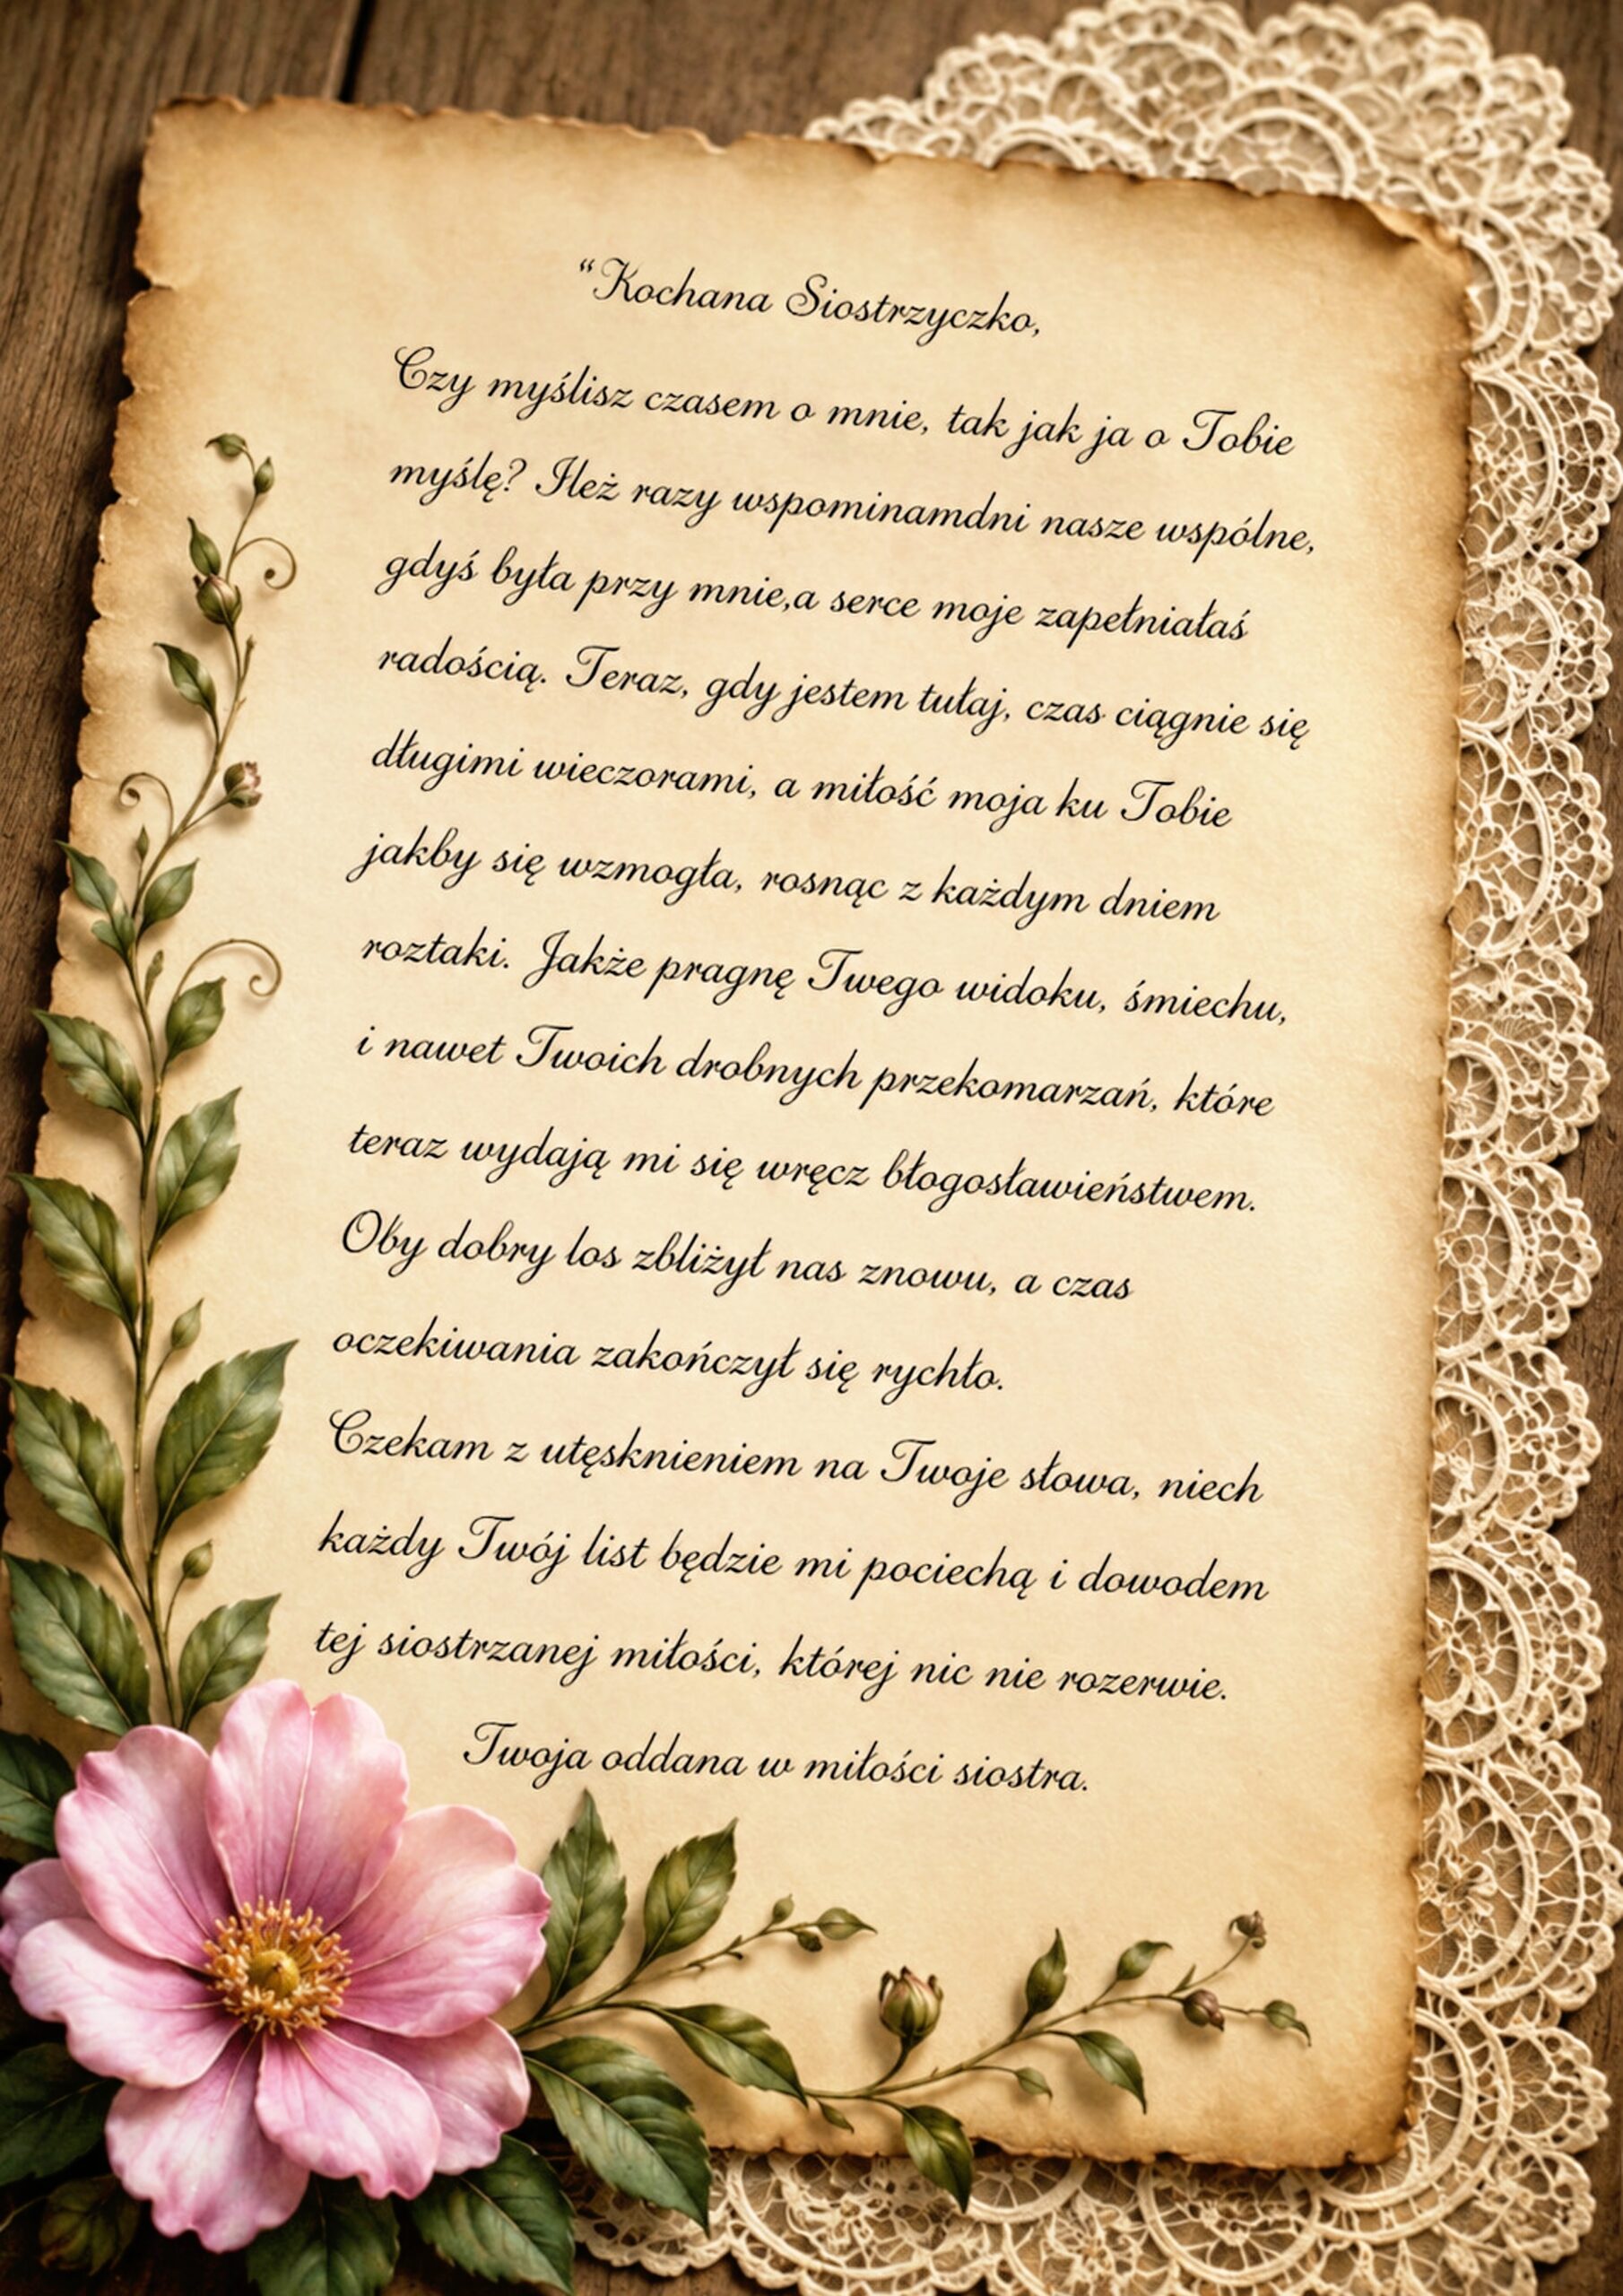 “Kochana Siostrzyczko,
Czy myślisz czasem o mnie, tak jak ja o Tobie
myślę? Ileż razy wspominamdni nasze wspólne,
gdyś była przy mnie,a serce moje zapełniałaś
radością. Teraz, gdy jestem tułaj, czas ciągnie się
długimi wieczorami, a miłość moja ku Tobie
jakby się wzmogła, rosnąc z każdym dniem
roztaki. Jakże pragnę Twego widoku, śmiechu,
i nawet Twoich drobnych przekomarzań, które
teraz wydają mi się wręcz błogosławieństwem.
Oby dobry los zbliżył nas znowu, a czas
oczekiwania zakończył się rychło.
Czekam z utęsknieniem na Twoje słowa, niech
każdy Twój list będzie mi pociechą i dowodem
tej siostrzanej miłości, której nic nie rozerwie.
Twoja oddana w miłości siostra.